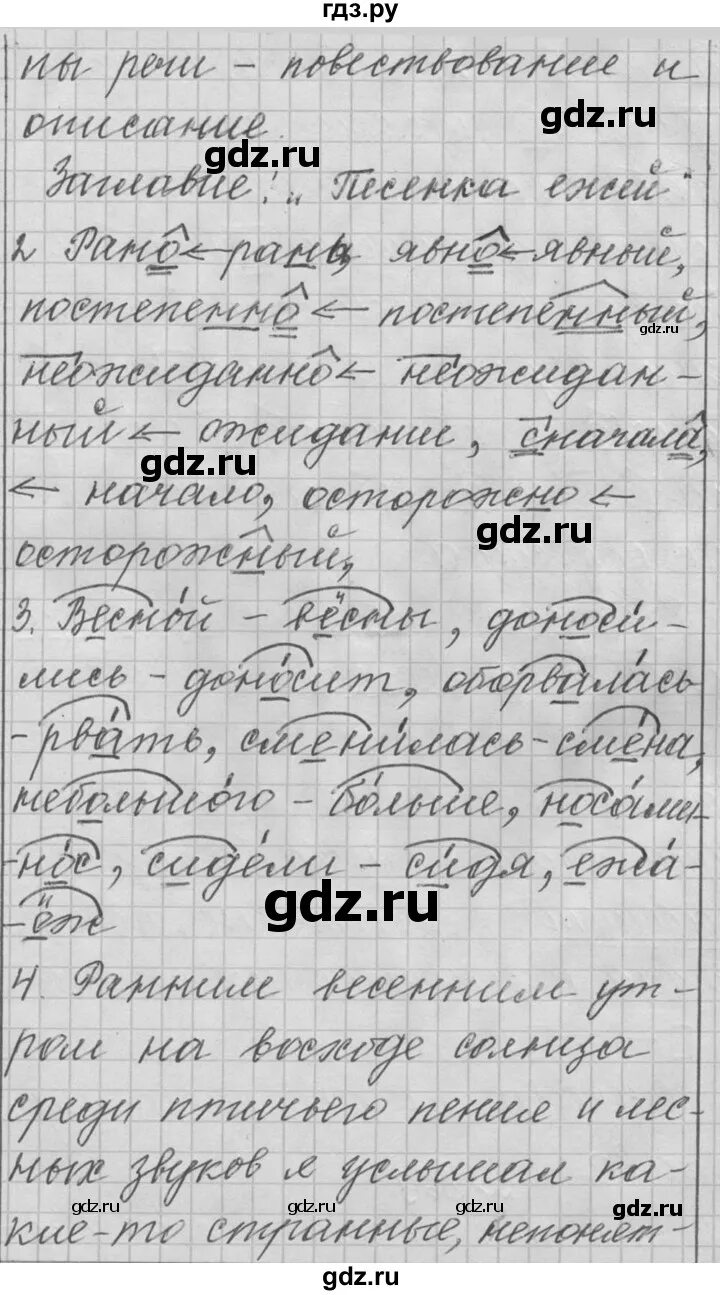 гдз.ру
ны речи – повествование и
описание.
gdz.ru
gdz.ru
Заглавие: „Песенка ежей"
2 Рано ← рань, явно ← явный,
постепенно ← постепенный,
gdz.ru
неожиданно ← неожидан-
ный ← ожидание, сначала,
gdz.ru
← начало, осторожно ←
gdz.ru
осторожный,
3. Весно́й – вёсны, доноси́-
лись – доно́сит, оборвала́сь
- рва́ть, смени́лась – сме́на,
небольшо́го – бо́льше, носа́ми
- но́с, сиде́ли – си́дя, ежа́ -
- ёж
gdz.ru
4. Ранним весенним ут-
ром на восходе солнца
среди птичьего пения и лес-
ных звуков я услышал ка-
gdz.ru
gdz.ru
gdz.ru
кие-то странные, непонят-
gdz.ru